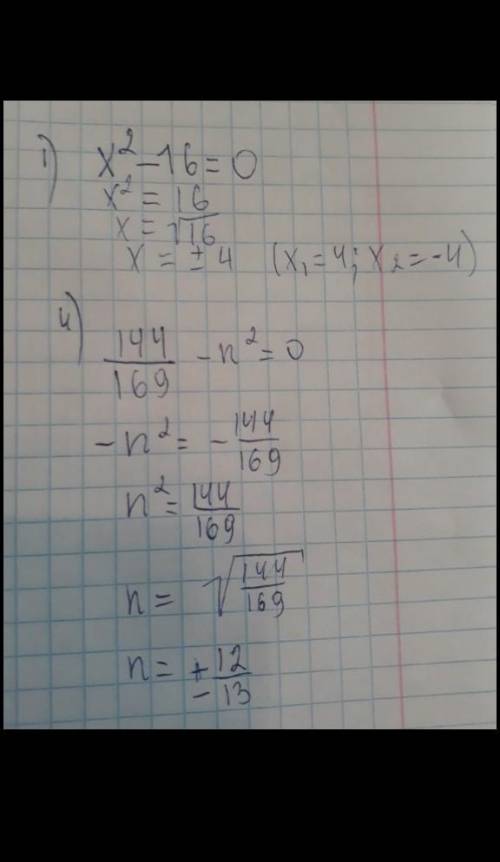 1) x² - 16 = 0
x² = 16
x = √16
x = ± 4 (x₁ = 4; x₂ = -4)
4) 144/169 - n² = 0
- n² = - 144/169
n² = 144/169
n = √144/169
n = ± 12/13